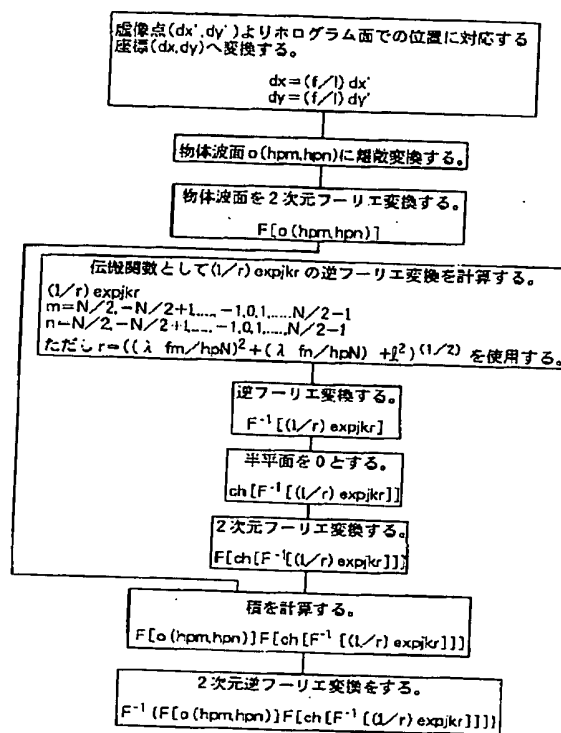 虚像点(dx',dy')よりホログラム面での位置に対応する
座標(dx,dy)へ変換する。
dx=(f/l)dx'
dy=(f/l)dy'
物体波面o(hpm,hpn)に離散変換する。
物体波面を2次元フーリエ変換する。
F[o(hpm,hpn)]
伝搬関数として(1/r)expjkrの逆フーリエ変換を計算する。
(1/r)expjkr
m=N/2,-N/2+1,....,-1,0,1,....,N/2-1
n=N/2,-N/2+1,....,-1,0,1,....,N/2-1
ただしr=((λ fm/hpN)²+(λ fn/hpN) +ℓ²)^(1/2) を使用する。
逆フーリエ変換する。
F⁻¹[(1/r)expjkr]
半平面を0とする。
ch[F⁻¹[(1/r)expjkr]]
2次元フーリエ変換する。
F[ch[F⁻¹[(1/r)expjkr]]]
積を計算する。
F[o(hpm,hpn)]F[ch[F⁻¹[(1/r)expjkr]]]
2次元逆フーリエ変換をする。
F⁻¹{F[o(hpm,hpn)]F[ch[F⁻¹[(1/r)expjkr]]]}